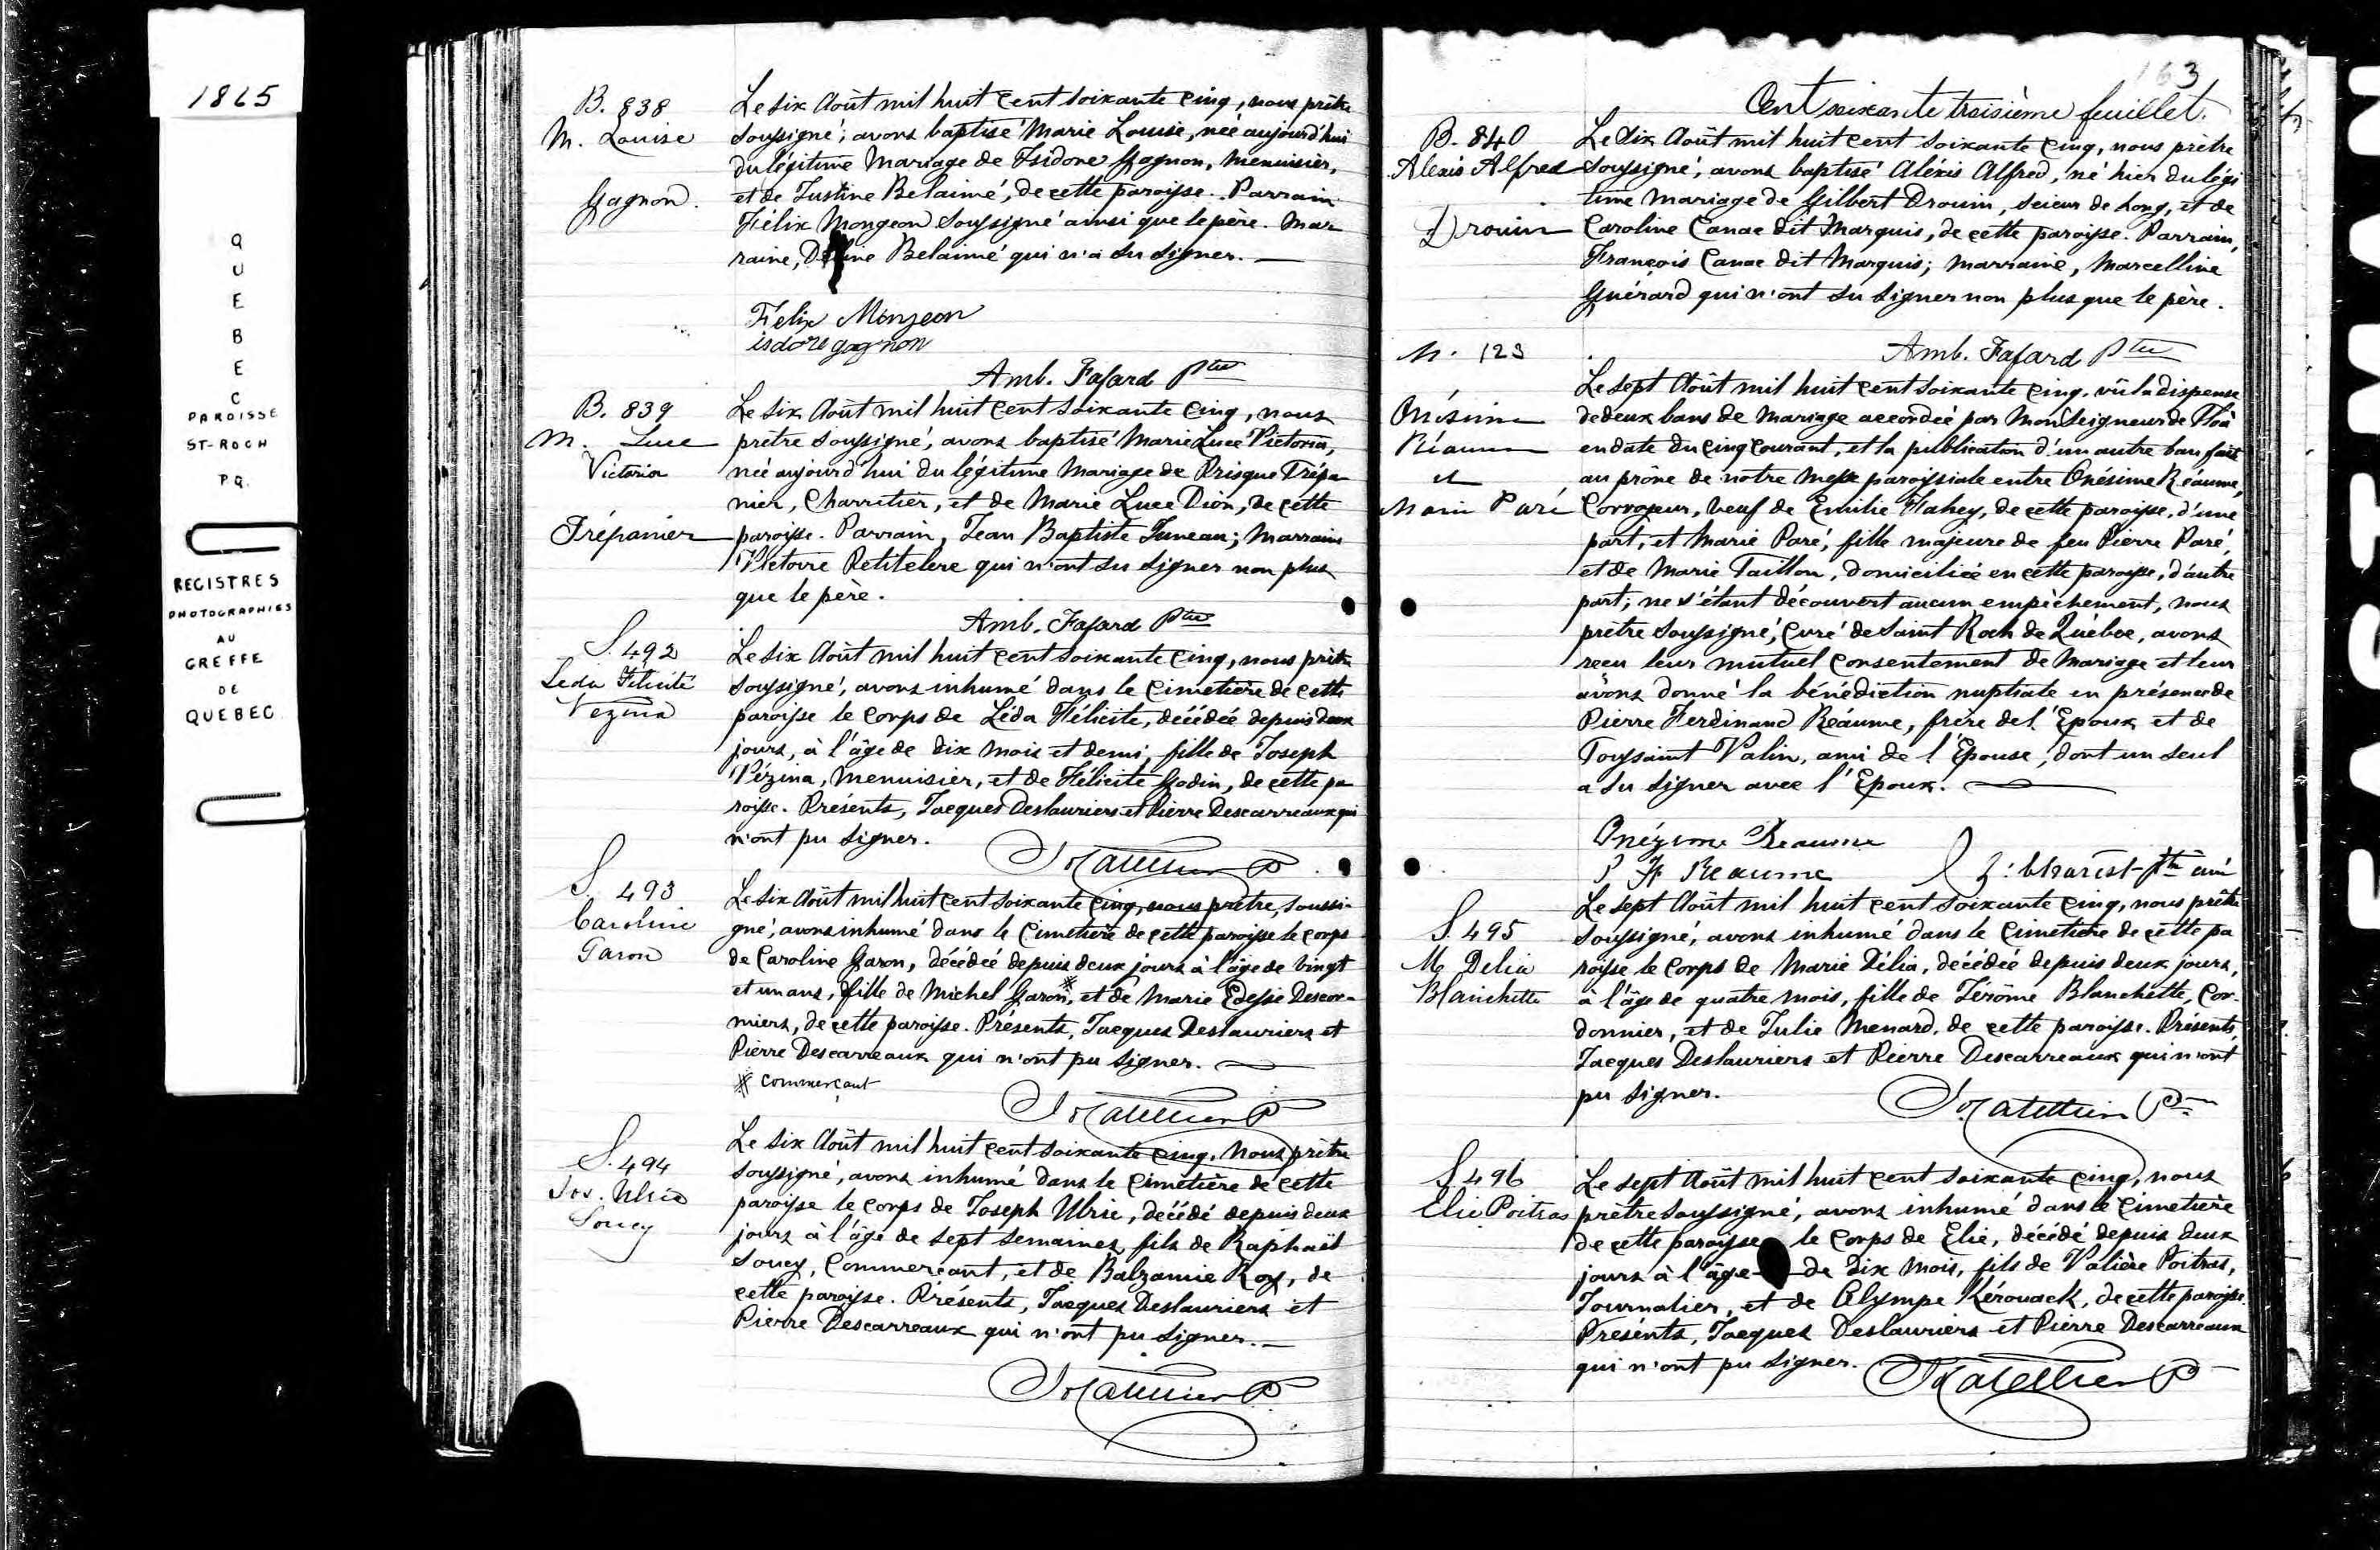 1865
QUEBEC
PAROISSE
ST-ROCH
PQ.
REGISTRES
PHOTOGRAPHIES
AU
GREFFE
DE
QUEBEC
B. 838
M. Louise
Gagnon.
Le six Août mil huit cent soixante cinq, nous prêtre
soussigné, avons baptisé Marie Louise, née aujourd'hui
du légitime Mariage de Isidore Gagnon, Menuisier,
et de Justine Belaimé, de cette paroisse. Parrain
Félix Mongeon soussigné ainsi que le père. Mar
raine, Belaimé qui n'a su signer. —
Felix Monjeon
isdore gagnon
Amb. Fafard Ptre
B. 839
M. Luce
Victoria
Trépanier
Le six Août mil huit cent soixante cinq, nous
prêtre soussigné, avons baptisé Marie Luce Victoria,
née aujourd'hui du légitime Mariage de Prisque Trépa
nier, Charretier, et de Marie Luce Dion, de cette
paroisse. Parrain, Jean Baptiste Juneau; Marraine
Victoire Petitclerc qui n'ont su signer non plus
que le père.
Amb. Fafard Ptre
S. 492
Leda Félicité
Vezina
Le six Août mil huit cent soixante cinq, nous prêtre
soussigné, avons inhumé dans le Cimetière de cette
paroisse le corps de Léda Félicité, décédée depuis deux
jours, à l'âge de dix mois et demi, fille de Joseph
Vézina, Menuisier, et de Félicité Godin, de cette pa
roisse. Présents, Jacques Deslauriers et Pierre Descarreaux qui
n'ont pu signer.
S. 493
Caroline
Garon
Le six Août mil huit cent soixante cinq, nous prêtre, soussi-
gné, avons inhumé dans le Cimetière de cette paroisse le corps
de Caroline Garon, décédée depuis deux jours à l'âge de vingt
et un ans, fille de Michel Garon*, et de Marie Edesse Descor-
miers, de cette paroisse. Présents, Jacques Deslauriers et
Pierre Descarreaux qui n'ont pu signer. —
* commerçant
S. 494
Jos. Ulric
Soucy
Le six Août mil huit cent soixante cinq, Nous prêtre
soussigné, avons inhumé dans le Cimetière de cette
paroisse le corps de Joseph Ulric, décédé depuis deux
jours à l'âge de sept semaines, fils de Raphaël
Soucy, Commerçant, et de Balzamie Roy, de
cette paroisse. Présents, Jacques Deslauriers et
Pierre Descarreaux qui n'ont pu signer. —
163
Cent soixante troisième feuillet.
B. 840
Alexis Alfred
Drouin
Le six Août mil huit cent soixante cinq, nous prêtre
soussigné, avons baptisé Aléxis Alfred, né hier du légi
time Mariage de Gilbert Drouin, scieur de Long, et de
Caroline Canac dit Marquis, de cette paroisse. Parrain,
François Canac dit Marquis; Marraine, Marcelline
Guérard qui n'ont su signer non plus que le père.
Amb. Fafard Ptre
M. 123
Onésime
Réaume
et
Marie Paré
Le sept Août mil huit cent soixante cinq, vû la dispense
de deux bans de Mariage accordée par Monseigneur de Tloa
en date du cinq courant, et la publication d'un autre ban fait
au prône de notre Messe paroissiale entre Onésime Réaume,
Corroyeur, veuf de Emilie Fahey, de cette paroisse, d'une
part, et Marie Paré, fille majeure de feu Pierre Paré,
et de Marie Taillon, domiciliée en cette paroisse, d'autre
part; ne s'étant découvert aucun empêchement, nous
prêtre soussigné, Curé de Saint Roch de Québec, avons
reçu leur mutuel consentement de Mariage et leur
avons donné la bénédiction nuptiale en présence de
Pierre Ferdinand Réaume, frère de l'Epoux et de
Toussaint Valin, ami de l'Epouse, dont un seul
a su signer avec l'Epoux. —
Onézime Reaume
P F Reaume
Z: Charest Ptre curé
S. 495
Me Delia
Blanchette
Le sept Août mil huit cent soixante cinq, nous prêtre
soussigné, avons inhumé dans le Cimetière de cette pa
roisse le corps de Marie Délia, décédée depuis deux jours,
à l'âge de quatre mois, fille de Jérôme Blanchette, Cor-
donnier, et de Julie Menard, de cette paroisse. Présents,
Jacques Deslauriers et Pierre Descarreaux qui n'ont
pu signer.
S. 496
Elie Poitras
Le sept Août mil huit cent soixante cinq, nous
prêtre soussigné, avons inhumé dans le Cimetière
de cette paroisse le corps de Elie, décédé depuis deux
jours à l'âge de dix mois, fils de Valière Poitras,
Journalier, et de Olympe Kérouack, de cette paroisse.
Présents, Jacques Deslauriers et Pierre Descarreaux
qui n'ont pu signer.